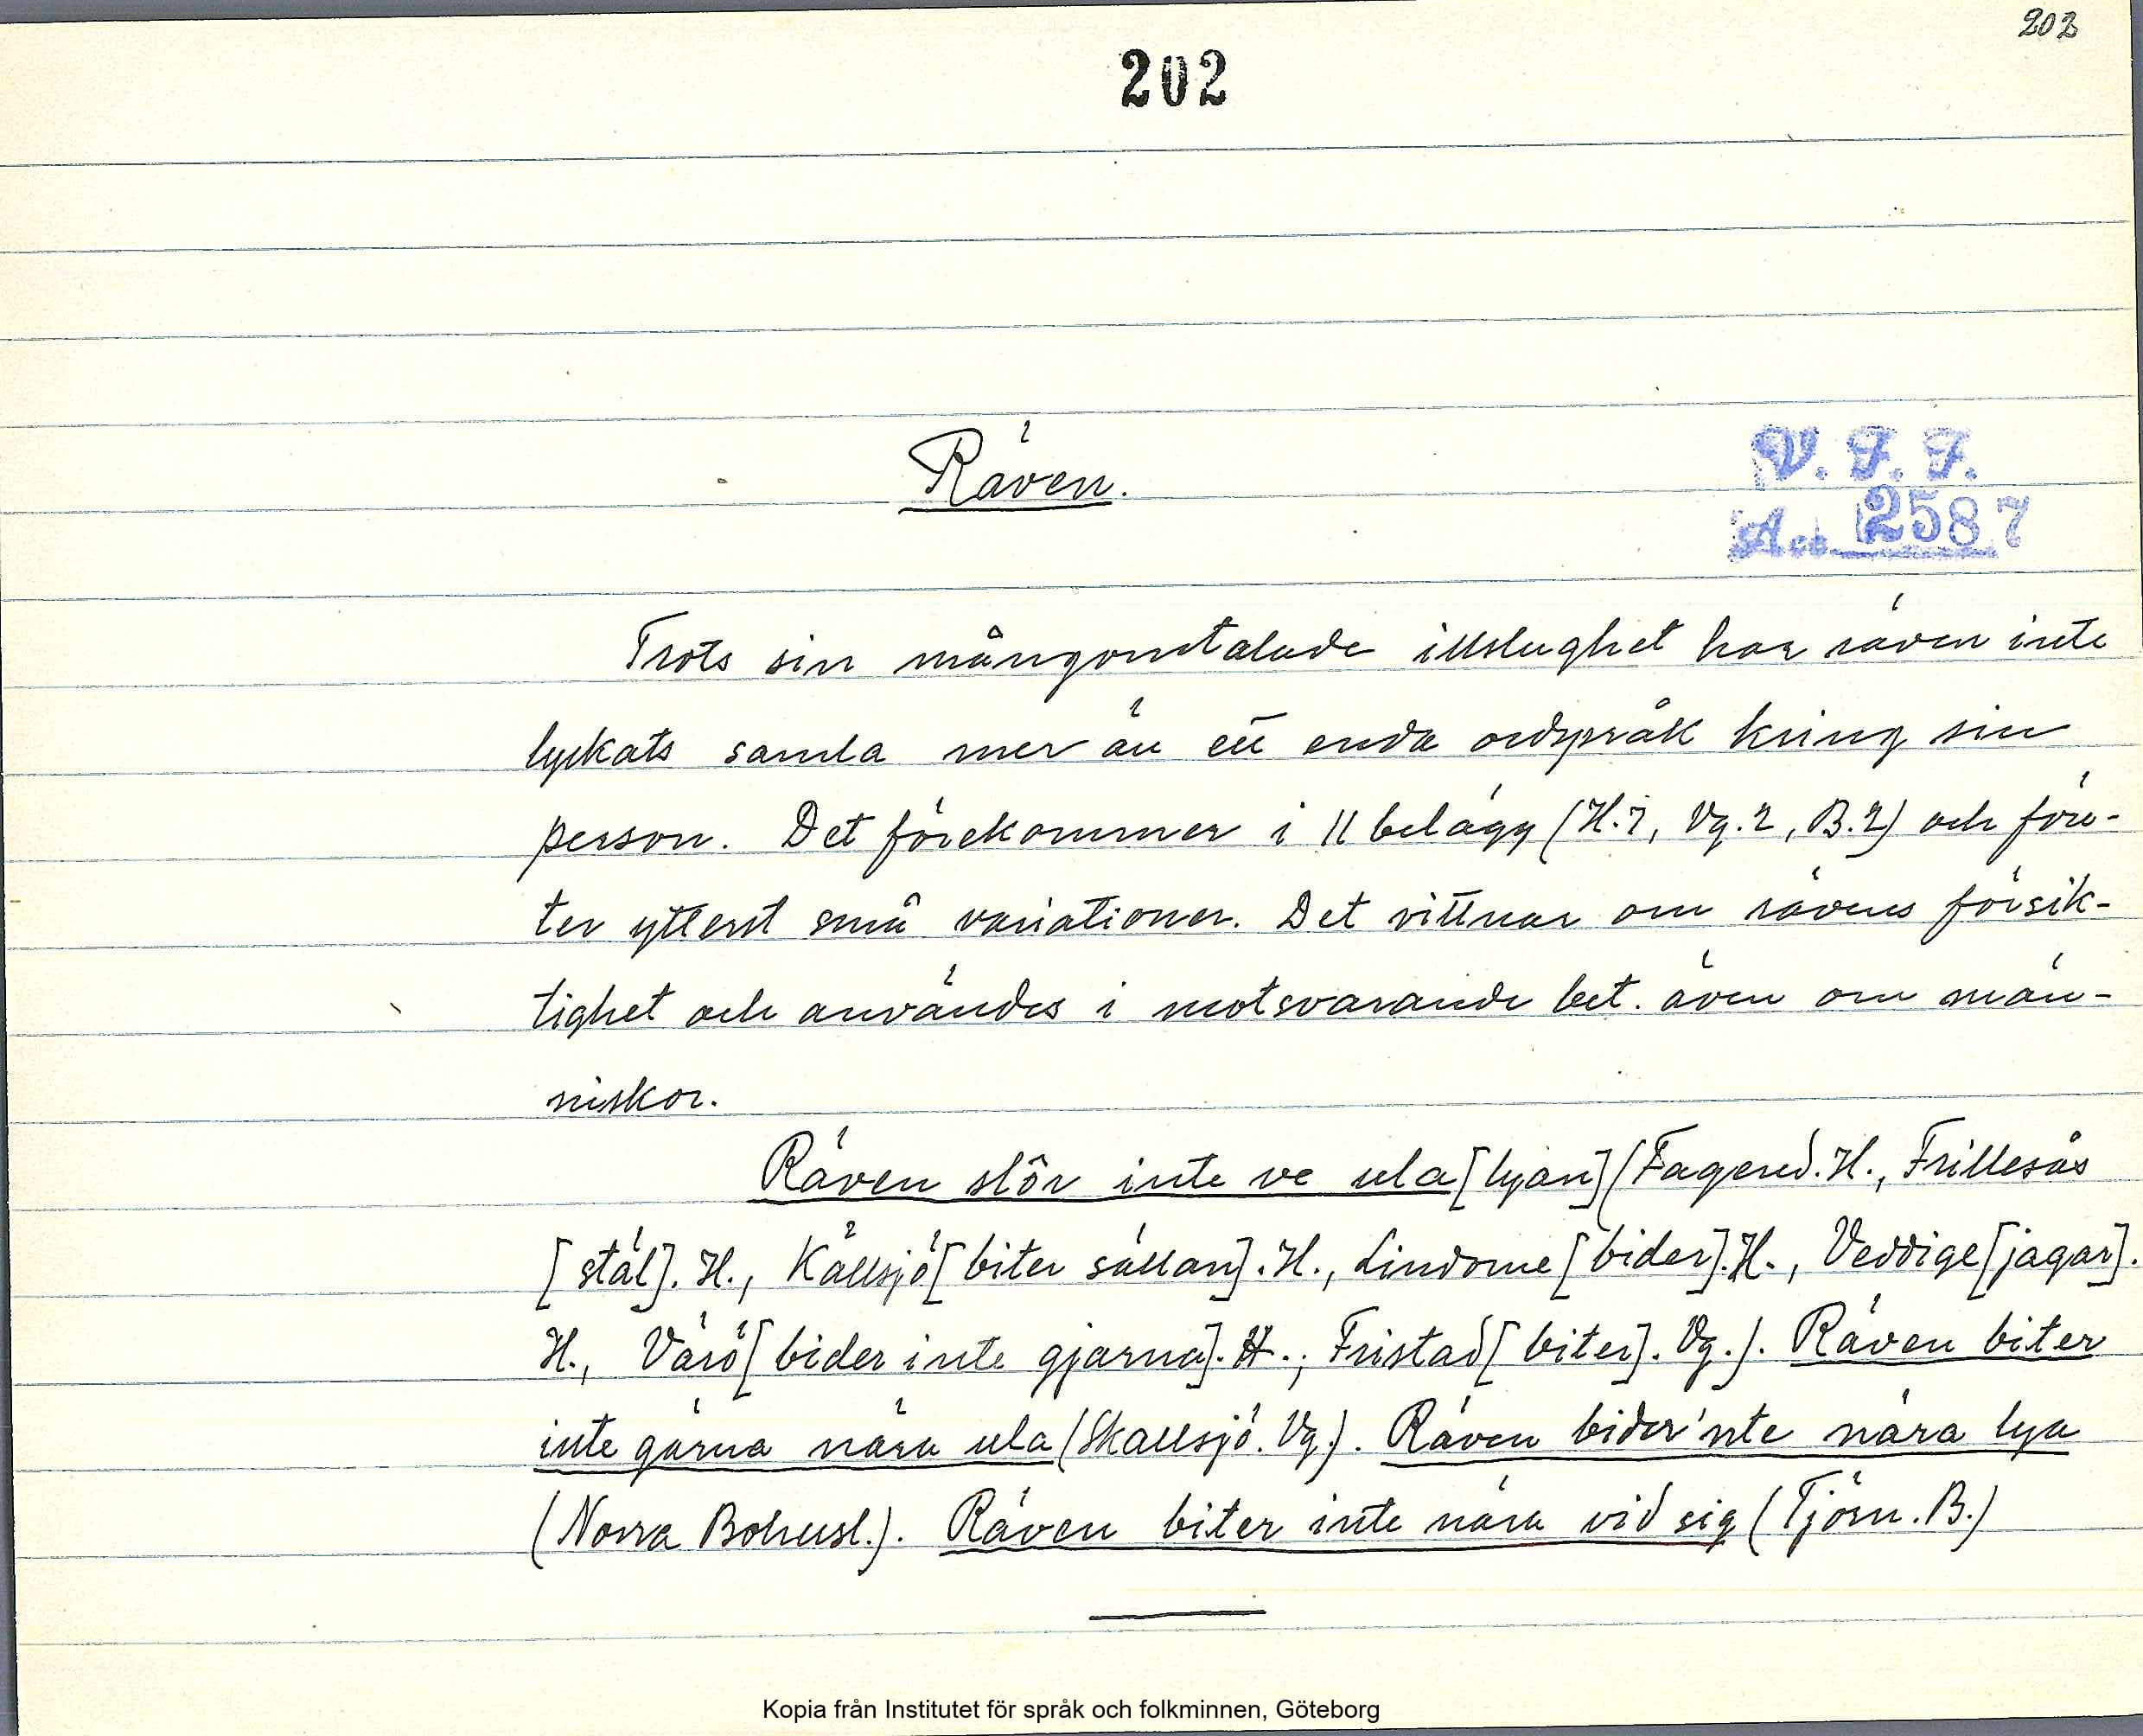 202
202
Räven.
V. F. F.
Acc. 2587
Trots sin mångomtalade illslughet har räven inte
lyckats samla mer än ett enda ordspråk kring sin
person. Det förekommer i 11 belägg (H. 7, Vg. 2, B. 2) och före-
ter ytterst små variationer. Det vittnar om rävens försik-
tighet och användes i motsvarande bet. även om män-
niskor.
Räven slôr inte ve ula [lyan] (Fagered. H., Frillesås
[stäl]. H., Källsjö [biter sällan]. H., Lindome [bider]. H., Veddige [jagar].
H., Värö [bider inte gjarna]. H., Fristad [biter]. Vg.). Räven biter
inte gärna nära ula (Skallsjö. Vg.). Räven bider'nte nära lya
(Norra Bohusl.). Räven biter inte nära vid sig (Tjörn. B.)
Kopia från Institutet för språk och folkminnen, Göteborg